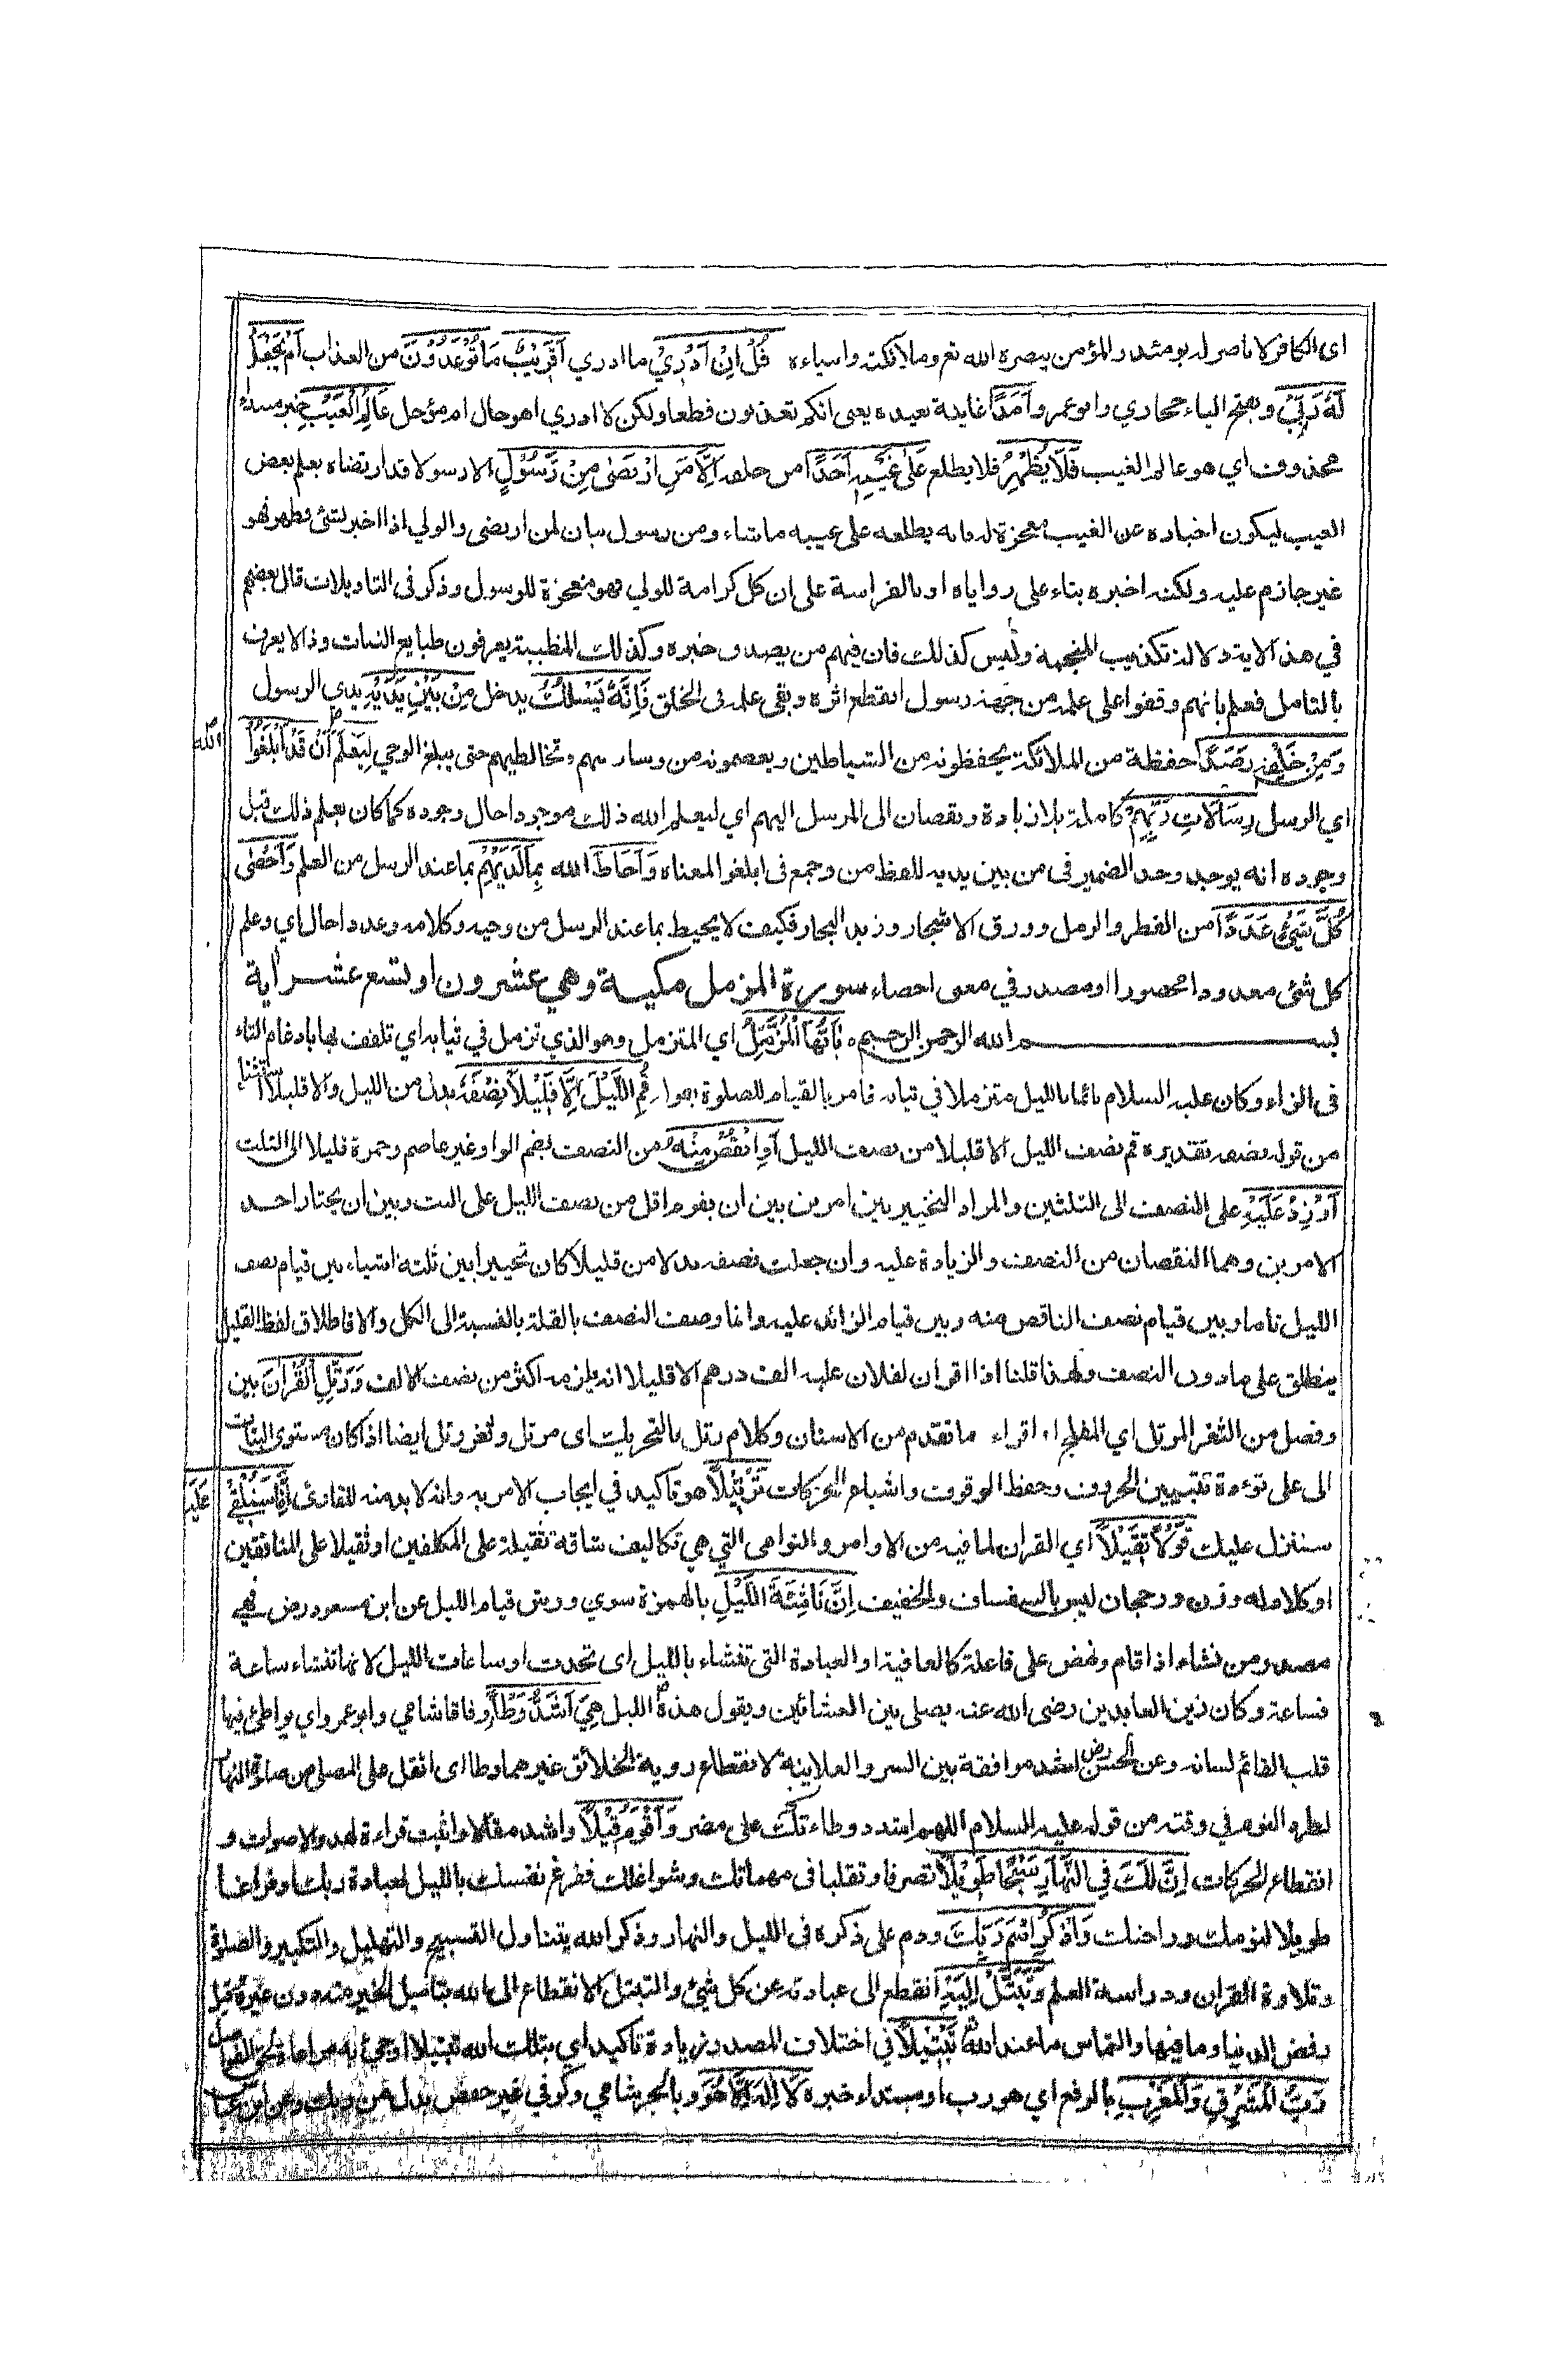 اى الكافر لا ناصر له يومئذ والمؤمن ينصره الله تع وملائكته وانبياءه قُلْ اِنْ اَدْرِيْ ما ادري اَقَرِيْبٌ مَا تُوْعَدُوْنَ من العذاب اَمْ يَجْعَلُ
لَهٗ رَبِّيْ وبفتح الياء حجازي وابو عمرو اَمَدًا غاية بعيدة يعنى انكم تعذبون قطعا ولكن لا ادري اهو حال ام مؤجل عَالِمُ الْغَيْبِ خبر مبتداء
محذوف اي هو عالم الغيب فَلَا يُظْهِرُ فلا يطلع عَلٰى غَيْبِهٖ اَحَدًا من خلقه اِلَّا مَنِ ارْتَضٰى مِنْ رَسُوْلٍ الا رسولا قد ارتضاه بعلم بعض
الغيب ليكون اخباره عن الغيب معجزة له فانه يطلعه على غيبه ماشاء ومن رسول بيان لمن ارتضى والولي اذا اخبر بشئ فظهر فهو
غير جازم عليه ولكنه اخبره بناء على روياه او بالفراسة على ان كل كرامة للولي فهو معجزة للرسول وذكر فى التاويلات قال بعضهم
في هذه الاية دلالة تكذيب المنجمة وليس كذلك فان فيهم من يصدق خبره وكذلك المتطببة يعرفون طبايع النبات وذا لا يعرف
بالتامل فعلم بانهم وقفوا على علمه من جهة رسول انقطع اثره وبقى علمه فى الخلق فَاِنَّهٗ يَسْلُكُ يدخل مِنْ بَيْنِ يَدَيْهِ يدي الرسول
وَمِنْ خَلْفِهٖ رَصَدًا حفظة من الملائكة يحفظونه من الشياطين ويعصمونه من وساوسهم وتخاليطهم حتى يبلغ الوحي لِيَعْلَمَ الله اَنْ قَدْ اَبْلَغُوْا
اي الرسل رِسَالَاتِ رَبِّهِمْ كاملة بلا زيادة ونقصان الى المرسل اليهم اي ليعلم الله ذلك موجودا حال وجوده كما كان يعلم ذلك قبل
وجوده انه يوجد وحد الضمير فى من بين يديه للفظ من وجمع فى ابلغوا لمعناه وَاَحَاطَ الله بِمَا لَدَيْهِمْ بما عند الرسل من العلم وَاَحْصٰى
كُلَّ شَيْءٍ عَدَدًا من القطر والرمل وورق الاشجار وزبد البحار فكيف لا يحيط بما عند الرسل من وحيه وكلامه وعددا حال اي وعلم
كل شئ معدودا محصورا او مصدر في معنى احصاء سورة المزمل مكية وهي عشرون او تسع عشر اية
بسم الله الرحمن الرحيم يٰاَيُّهَا الْمُزَّمِّلُ اي المتزمل وهو الذي تزمل في ثيابه اي تلفف بها بادغام التاء
فى الزاء وكان عليه السلام نائما بالليل متزملا في ثيابه فامر بالقيام للصلوة بقوله قُمِ اللَّيْلَ اِلَّا قَلِيْلًا نِصْفَهٗ بدل من الليل والا قليلا استثناء
من قوله نصفه تقديره قم نصف الليل الا قليلا من نصف الليل اَوِ انْقُصْ مِنْهُ من النصف بضم الواو غير عاصم وحمزة قليلا الى الثلث
اَوْ زِدْ عَلَيْهِ على النصف الى الثلثين والمراد التخيير بين امرين بين ان يقوم اقل من نصف الليل على البت وبين ان يختار احد
الامرين وهما النقصان من النصف والزيادة عليه وان جعلت نصفه بدلا من قليلا كان تخييرا بين ثلثة اشياء بين قيام نصف
الليل تاما وبين قيام نصف الناقص منه وبين قيام الزائد عليه وانما وصف النصف بالقلة بالنسبة الى الكل والا فاطلاق لفظ القليل
ينطلق على مادون النصف ولهذا قلنا اذا اقر ان لفلان عليه الف درهم الا قليلا انه يلزمه اكثر من نصف الالف وَرَتِّلِ الْقُرْاٰنَ بين
وفصل من الثغر المرتل اي المفلج او اقراء ما تقدم من الاسنان وكلام رتل بالتحريك اى مرتل وثغر رتل ايضا اذا كان مستوى النبات
الى على تؤدة تبيين الحروف وحفظ الوقوف واشباع الحركات تَرْتِيْلًا هو تاكيد في ايجاب الامر به وانه لا بد منه للقارئ اِنَّا سَنُلْقِيْ عَلَيْكَ
سننزل عليك قَوْلًا ثَقِيْلًا اي القران لما فيه من الاوامر والنواهى التي هي تكاليف شاقة ثقيلة على المكلفين او ثقيلا على المنافقين
او كلام له وزن ورجحان ليس بالسفساف والخفيف اِنَّ نَاشِئَةَ اللَّيْلِ بالهمزة سوي ورش قيام الليل عن ابن مسعود رض فهي
مصدر من نشاء اذا قام ونهض على فاعلة كالعافية او العبادة التى تنشاء بالليل اى تحدث او ساعات الليل لانها تنشاء ساعة
فساعة وكان زين العابدين رضى الله عنه يصلى بين العشائين ويقول هذه ناشئة الليل هِيَ اَشَدُّ وَطْأً وفاقا شامي وابو عمرو اي يواطئ فيها
قلب القائم لسانه وعن الحسن رض اشد موافقة بين السر والعلانية لانقطاع روية الخلائق غيرهما وطا اى اثقل على المصلى من صلوة النهار
لطرد النوم في وقته من قوله عليه السلام اللهم اشدد وطاءتك على مضر وَاَقْوَمُ قِيْلًا واشد مقالا واثبت قراءة لهدو الاصوات و
انقطاع الحركات اِنَّ لَكَ فِي النَّهَارِ سَبْحًا طَوِيْلًا تصرفا وتقلبا فى مهماتك وشواغلك ففرغ نفسك بالليل لعبادة ربك او فراغا
طويلا لنومك وراحتك وَاذْكُرِ اسْمَ رَبِّكَ ودم على ذكره فى الليل والنهار وذكر الله يتناول التسبيح والتهليل والتكبير والصلوة
وتلاوة القران ودراسة العلم وَتَبَتَّلْ اِلَيْهِ انقطع الى عبادته عن كل شيئ والتبتل الانقطاع الى الله بتاميل الخير منه دون غيره وقيل
رفض الدنيا وما فيها والتماس ما عند الله تَبْتِيْلًا في اختلاف المصدر زيادة تاكيد اي بتلك الله فتبتل تبتيلا او جئ به مراعاة لحق الفواصل
رَبُّ الْمَشْرِقِ وَالْمَغْرِبِ بالرفع اي هو رب او مبتداء خبره لَا اِلٰهَ اِلَّا هُوَ وبالجر شامي وكوفي غير حفص بدل من ربك وعن ابن عباس